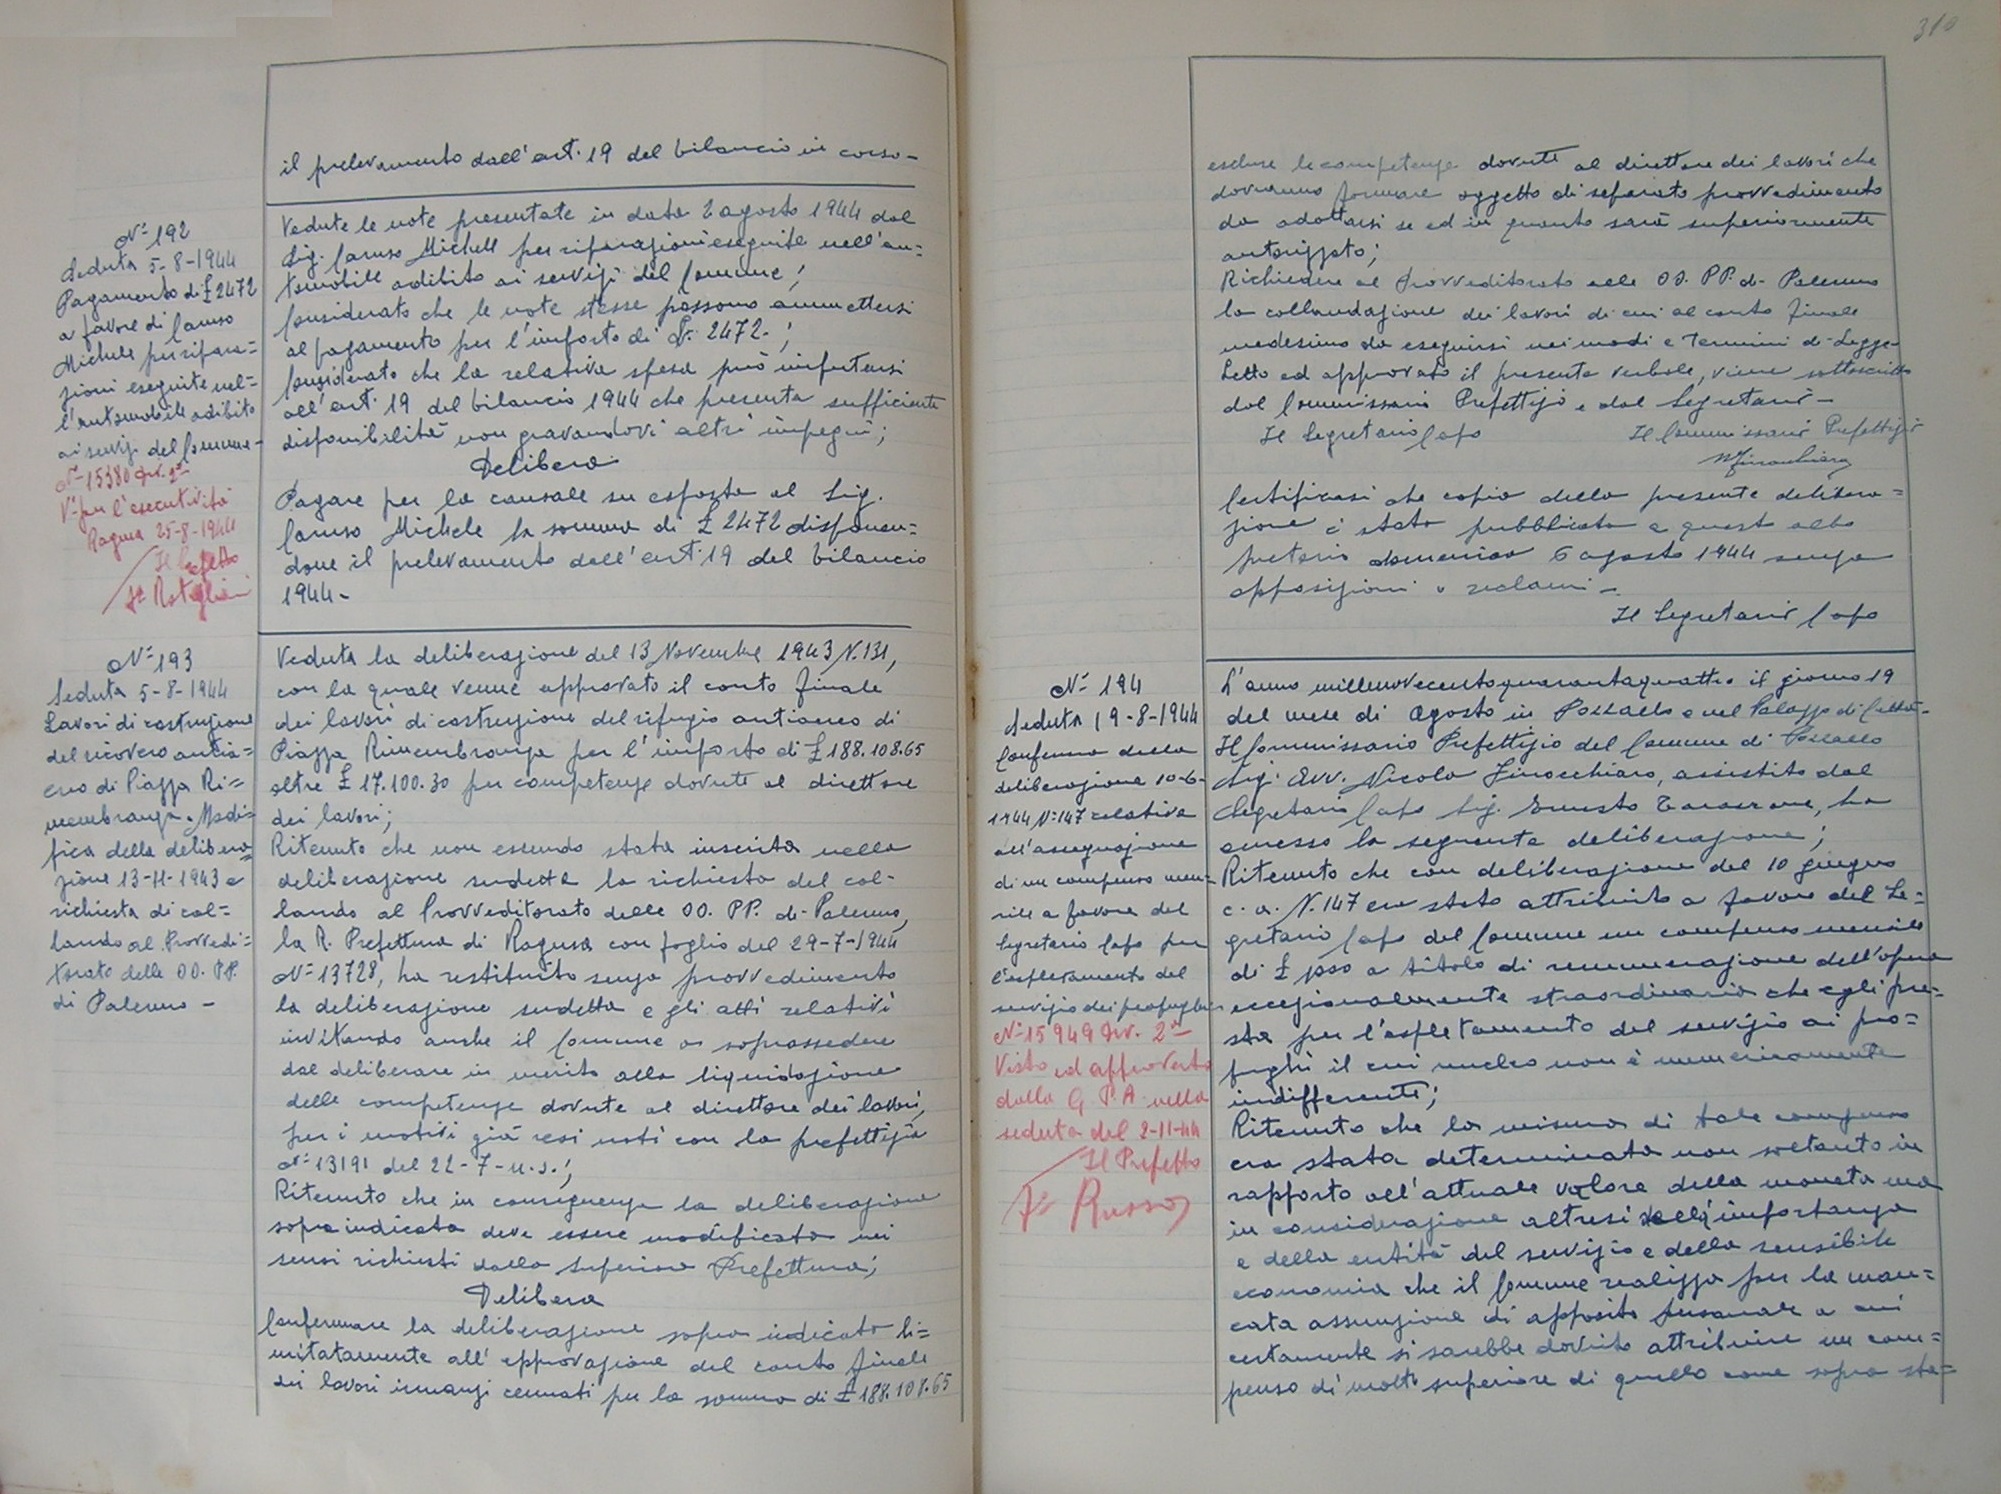 il prelevamento dall'art. 19 del bilancio in corso-
N° 192
Seduta 5-8-1944
Pagamento di £ 2472
a favore di Caruso
Michele per ripara=
zioni eseguite nel=
l'automobile adibito
ai servizi del Comune-
N° 15380 Div. 2ª
V° per l'esecutività
Ragusa 25-8-1944
Il Prefetto
Vedute le note presentate in data 2 agosto 1944 dal
Sig. Caruso Michele per riparazioni eseguite nell'au=
tomobile adibito ai servizi del Comune;
Considerato che le note stesse possono ammettersi
al pagamento per l'importo di £. 2472.;
Considerato che la relativa spesa può imputarsi
all'art. 19 del bilancio 1944 che presenta sufficiente
disponibilità non gravandovi altri impegni;
Delibera
Pagare per la causale su esposta al Sig.
Caruso Michele la somma di £ 2472 disponen=
done il prelevamento dall'art. 19 del bilancio
1944-
N° 193
Seduta 5-8-1944
Lavori di costruzione
del ricovero antia=
ereo di Piazza Ri=
membranza. Modi=
fica della delibera=
zione 13-11-1943 e
richiesta di col=
laudo al Provvedi=
torato delle OO. PP.
di Palermo -
Veduta la deliberazione del 13 Novembre 1943 N. 131,
con la quale venne approvato il conto finale
dei lavori di costruzione del rifugio antiaereo di
Piazza Rimembranza per l'importo di £ 188.108.65
oltre £ 17.100.30 per competenze dovute al direttore
dei lavori;
Ritenuto che non essendo stata inserita nella
deliberazione sudetta la richiesta del col-
laudo al Provveditorato delle OO. PP. di Palermo,
la R. Prefettura di Ragusa con foglio del 29-7-1944
N° 13728, ha restituito senza provvedimento
la deliberazione sudetta e gli atti relativi
invitando anche il Comune a soprassedere
dal deliberare in merito alla liquidazione
delle competenze dovute al direttore dei lavori,
per i motivi già resi noti con la prefettizia
N° 13191 del 22-7-u.s.;
Ritenuto che in conseguenza la deliberazione
sopraindicata deve essere modificata nei
sensi richiesti dalla Superiore Prefettura;
Delibera
Confermare la deliberazione sopra indicata li=
mitatamente all'approvazione del conto finale
dei lavori innanzi cennati per la somma di £ 188.108.65
310
escluse le competenze dovute al direttore dei lavori che
dovranno formare oggetto di separato provvedimento
da adottarsi se ed in quanto sarà superiormente
autorizzato;
Richiedere al Provveditorato alle OO. PP. di Palermo
la collaudazione dei lavori di cui al conto finale
medesimo da eseguirsi nei modi e termini di Legge-
Letto ed approvato il presente verbale, viene sottoscritto
dal Commissario Prefettizio e dal Segretario-
Il Segretario Capo Il Commissario Prefettizio
NFinocchiaro
Certificasi che copia della presente delibera=
zione è stata pubblicata a quest'albo
pretorio domenica 6 agosto 1944 senza
opposizioni o reclami -
Il Segretario Capo
N° 194
Seduta 19-8-1944
Conferma della
deliberazione 10-6-
1944 N° 147 relativa
all'assegnazione
di un compenso men=
sile a favore del
Segretario Capo per
l'espletamento del
servizio dei profughi
N° 15949 Div. 2ª
Visto ed approvato
dalla G. P. A. nella
seduta del 2-11-44
Il Prefetto
Fto Russo
L'anno millenovecentoquarantaquattro il giorno 19
del mese di Agosto in Pozzallo e nel Palazzo di Città-
Il Commissario Prefettizio del Comune di Pozzallo
Sig. Avv. Nicola Finocchiaro, assistito dal
Segretario Capo Sig. Ernesto, ha
emesso la seguente deliberazione;
Ritenuto che con deliberazione del 10 giugno
c.a. N. 147 era stato attribuito a favore del Se=
gretario Capo del Comune un compenso mensile
di £ a titolo di remunerazione dell'opera
eccezionalmente straordinaria che egli pre=
sta per l'espletamento del servizio ai pro=
fughi il cui nucleo non è numericamente
indifferente;
Ritenuto che la misura di tale compenso
era stata determinata non soltanto in
rapporto all'attuale valore della moneta ma
in considerazione altresì dell'importanza
e della entità del servizio e della sensibile
economia che il Comune realizza per la man=
cata assunzione di apposito personale a cui
certamente si sarebbe dovuto attribuire un com=
penso di molto superiore di quello come sopra sta=